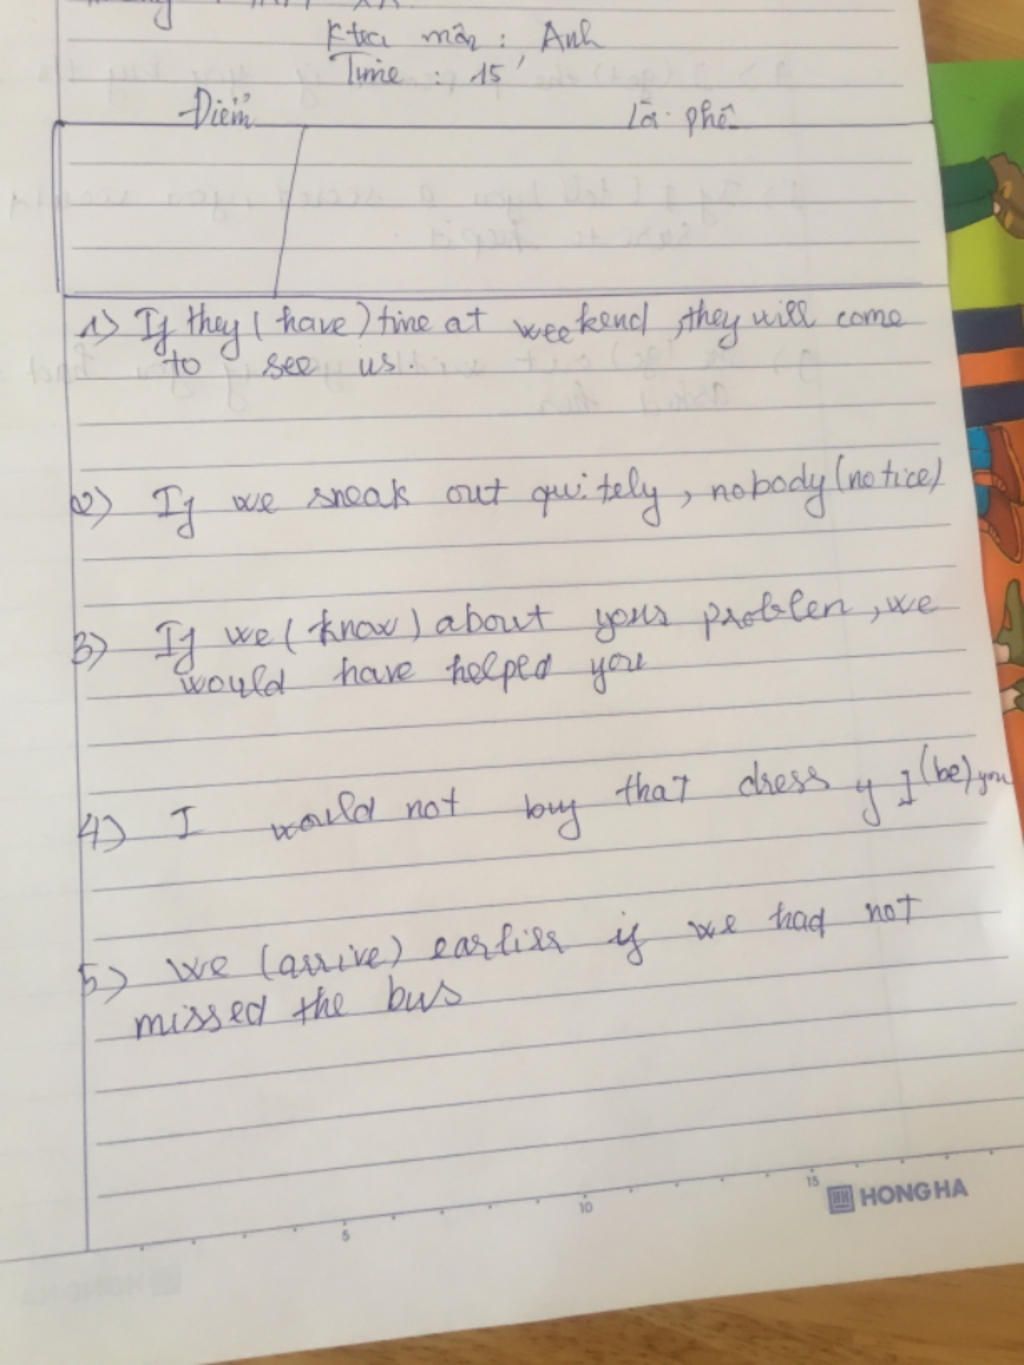 Ktra môn : Anh
Time : 15'
Điểm
Lời phê
1) If they (have) time at weekend, they will come
to see us.
2) If we sneak out quitely, nobody (notice)
3) If we (know) about your problem, we
would have helped you
4) I would not buy that dress if I (be) you
5) we (arrive) earlier if we had not
missed the bus
5 10 15
HONG HA